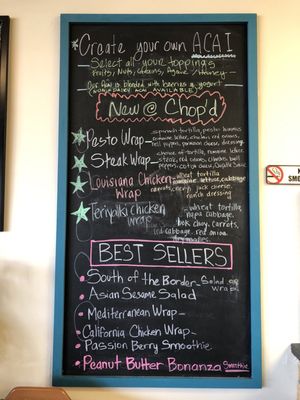 Create your own ACAI
Select all your toppings
Fruits, Nuts, Granola, Agave / Honey
Our Acai is blended with berries & yogurt
(NON-DAIRY ACAI AVAILABLE)
New @ Chop'd
Pasto Wrap - spinach tortilla, pesto hummus
romaine lettuce, chicken, red onions,
bell peppers, parmesan cheese, dressing
Steak Wrap - choice of tortilla, romaine lettuce
steak, red onions, bell
peppers, cheese,
Louisiana Chicken Wrap - wheat tortilla
romaine lettuce, cabbage
carrots, jack cheese,
ranch dressing
Teriyaki Chicken Wrap - wheat tortilla,
napa cabbage,
bok choy, carrots,
red cabbage, red onion,
BEST SELLERS
South of the Border - Salad or Wrap
Asian Sesame Salad
Mediterranean Wrap -
California Chicken Wrap -
Passion Berry Smoothie
Peanut Butter Bonanza Smoothie
NO